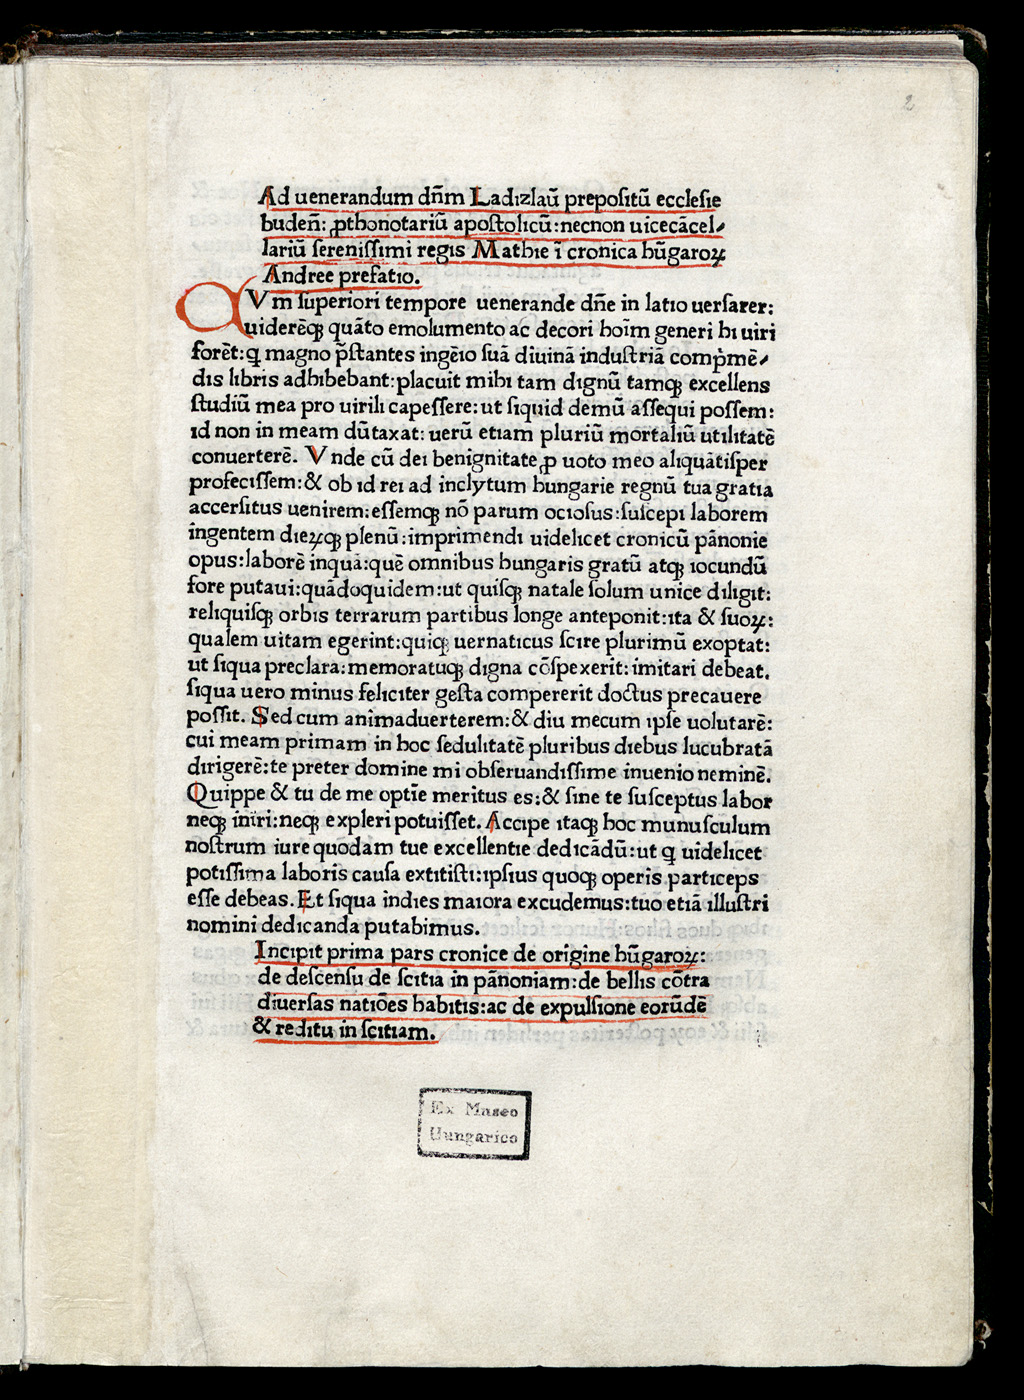 2
Ad uenerandum dn̄m Ladizlaū prepoſitū eccleſie
buden̄: ꝓthonotariū apoſtolicū:necnon uicecācel⸗
lariū ſereniſſimi regis Mathie ī cronica hūgaroꝝ
Andree prefatio.
QVm ſuperiori tempore uenerande dn̄e in latio uerſarer:
uiderēqꝫ quāto emolumento ac decori hoīm generi hi uiri
forēt:ꝗ magno p̄ſtantes ingēio ſuā diuinā induſtriā comp̄mē⸗
dis libris adhibebant:placuit mihi tam dignū tamqꝫ excellens
ſtudiū mea pro uirili capeſſere:ut ſiquid demū aſſequi poſſem:
id non in meam dūtaxat: uerū etiam pluriū mortaliū utilitatē
conuerterē. Vnde cū dei benignitate ꝓ uoto meo aliquātiſper
profeciſſem:& ob id rei ad inclytum hungarie regnū tua gratia
accerſitus uenirem:eſſemqꝫ nō parum ocioſus:ſuſcepi laborem
ingentem dieꝝqꝫ plenū:imprimendi uidelicet cronicū pānonie
opus:laborē inquā:quē omnibus hungaris gratū atqꝫ iocundū
fore putaui:quādoquidem:ut quiſqꝫ natale ſolum unice diligit:
reliquiſqꝫ orbis terrarum partibus longe anteponit:ita & ſuoꝝ:
qualem uitam egerint:quiqꝫ uernaticus ſcire plurimū exoptat:
ut ſiqua preclara:memoratuqꝫ digna cōſpexerit:imitari debeat.
ſiqua uero minus feliciter geſta compererit doctus precauere
poſſit. Sed cum animaduerterem:& diu mecum ipſe uolutarē:
cui meam primam in hoc ſedulitatē pluribus diebus lucubratā
dirigerē:te preter domine mi obſeruandiſſime inuenio neminē.
Quippe & tu de me optīe meritus es:& ſine te ſuſceptus labor
neqꝫ iniri:neqꝫ expleri potuiſſet. Accipe itaqꝫ hoc munuſculum
noſtrum iure quodam tue excellentie dedicādū:ut ꝗ uidelicet
potiſſima laboris cauſa extitiſti:ipſius quoqꝫ operis particeps
eſſe debeas. Et ſiqua indies maiora excudemus:tuo etiā illuſtri
nomini dedicanda putabimus.
Incipit prima pars cronice de origine hūgaroꝝ:
de deſcenſu de ſcitia in pānoniam:de bellis cōtra
diuerſas natiōes habitis:ac de expulſione eorūdē
& reditu in ſcitiam.
Ex Museo
Hungarico